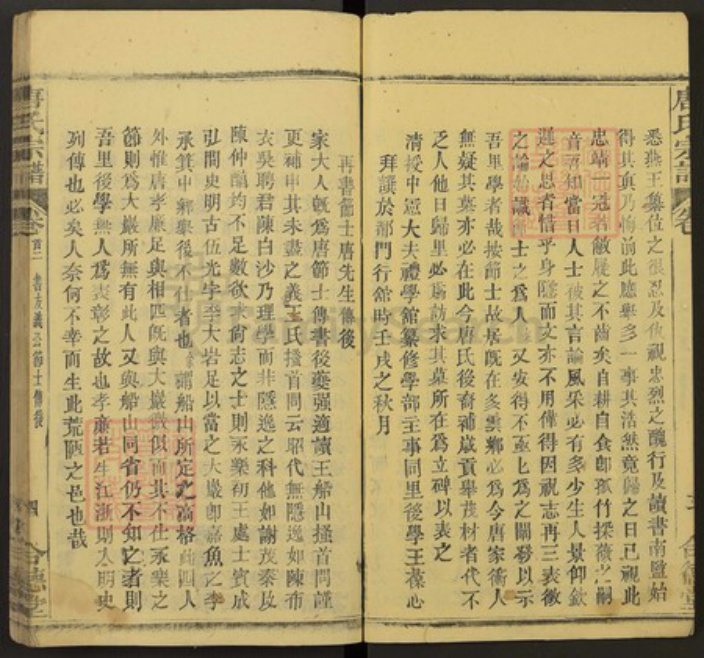 悉燕王篡位之很忍及仇視忠烈之醜行及讀書南監始
得其真乃悔前此應舉多一事其浩然竟歸之日已視此
忠靖一冠若敝屣之不啻矣自耕自食卽孤竹採薇之嗣
音吾知當日人士被其言論風采必有多少生人景仰欽
遲之思者惜乎身隱而文亦不用僅得因視志再三表徵
之論始識節士之爲人又安得不亟亟爲之闡發以示
吾里學者哉按節士故居旣在多雲鄉必爲今唐家衕人
無疑其墓亦必在此今唐氏後裔補歲貢舉茂材者代不
乏人他日歸里必爲訪求其墓所在爲立碑以表之
清授中憲大夫禮學館纂修學部主事同里後學王葆心
拜譔於都門行館時壬戌之秋月
再書節士唐先生傳後
家大人旣爲唐節士傳書後蘷强適讀王船山搔首問謹
更補申其未盡之義王氏搔首問云昭代無隱逸如陳布
衣吳聘君陳白沙乃理學而非隱逸之科他如謝茂秦及
陳仲醕均不足數欲求尙志之士則永樂初王處士賓成
弘間史明古伍光宇至大岩足以當之大巖卽嘉魚之李
承箕中解舉後不仕者也船山所定之高格四人
外惟唐孝廉足與相匹旣與大巖微似而其不仕永樂之
節則爲大巖所無有此人又與船山同省仍不知之者則
吾里後學無人爲表彰之故也孝廉若生江浙則入明史
列傳也必矣人奈何不幸而生此荒陋之邑也哉
唐氏宗譜
卷首二
書友義公節士傳後
四
唐氏宗譜
卷